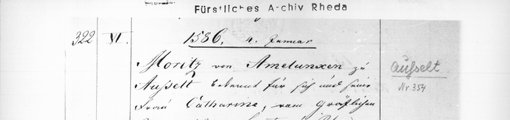 Fürstliches Archiv Rheda
322 VI. 1556, 4. Januar
Moritz von Amelunxen zu
Ausselt bekennt für sich und seine
Frau Catharine, vom Gräflichen
Ausselt
Nr 354